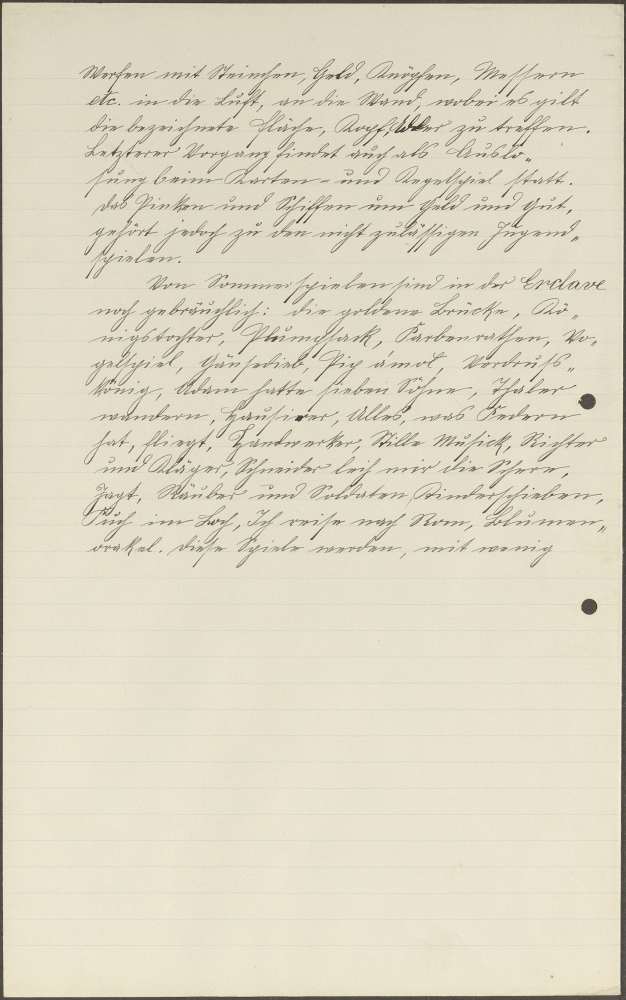 Werfen mit Steinchen, Geld, Knöpfen, Messern
etc. in die Luft, an die Wand, wobei es gilt
die bezeichnete Fläche, Kopf, Adler zu treffen.
Letzterer Vorgang findet auch als Auslo„
sung beim Karten- und Kegelspiel statt.
Das Pinken und Schiffen um Geld und Gut,
gehört jedoch zu den nicht zulässigen Jugend„
spielen.
Von Sommerspielen sind in der Enclave
noch gebräuchlich: die goldene Brücke, Kö„
nigstochter, Plumpsack, Farbenrathen, Vo„
gelspiel, Gänsedieb, Pig ámol, Verdruß„
könig, Adam hatte sieben Söhne, Thaler
wandern, Hausirer, Alles, was Federn
hat, fliegt, Handwerker, Stille Musick, Richter
und Kläger, Schneider leih mir die Scheer,
Jagt, Räuber und Soldaten, Kinderschieben,
Fuch im Loch, Ich reise nach Rom, Blumen„
orakel. Diese Spiele werden, mit wenig